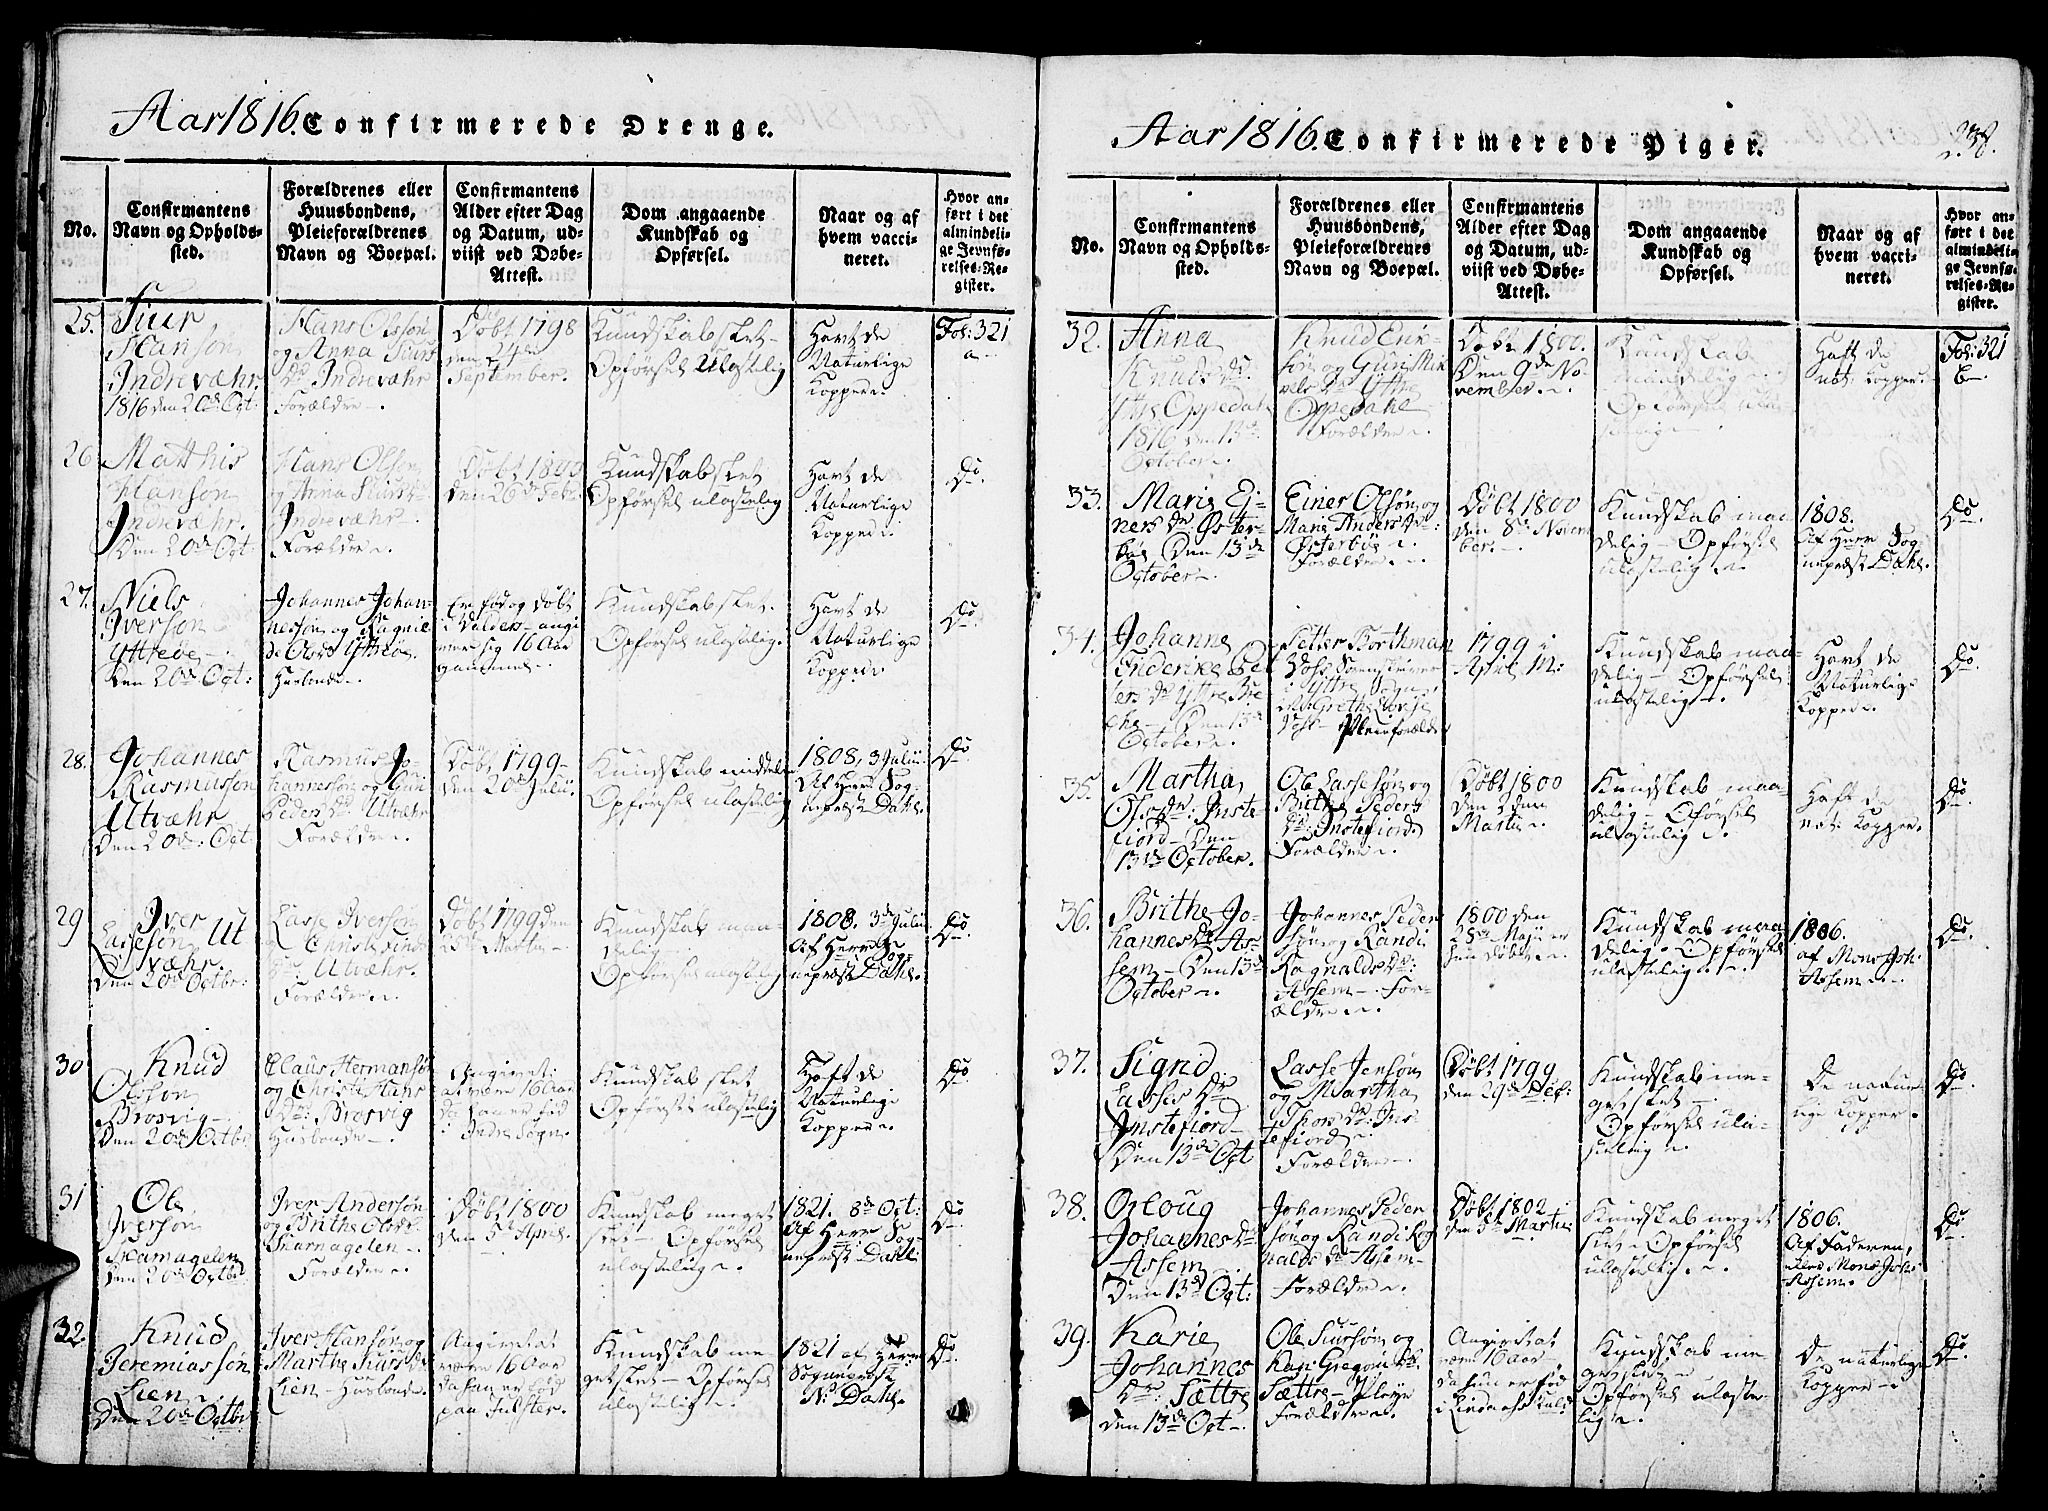 Aar 1816. Confirmerede Drenge.
No.
Confirmantens
Navn og Opholds-
sted.
Forældrenes eller
Huusbondens,
Pleieforældrenes
Navn og Boepæl.
Confirmantens
Alder efter Dag
og Datum, ud-
viist ved Døbe-
Attest.
Dom angaaende
Kundskab og
Opførsel.
Naar og af
hvem vacci-
neret.
Hvor an-
ført i det
almindeli-
ge Jevnfø-
relses-Re-
gister.
25.
Siur
Hanson
Indrevæhr.
1816 den 20de Oct:
Hans Olsson
og Anna Siurs
Dr Indrevæhr
Forældre
Døbt 1798
den 24de
September.
Kundskab slet
Opførsel Ulastelig
Havt de
Naturlige
Kopper
Fol: 321
a
26
Matthis
Hanson
Indrevæhr.
Den 20de Oct:
Hans Olson
og Anna Siurs Dr
Indrevæhr
Forældre
Døbt 1800
den 26de Febr.
Kundskab slet
Opførsel ulastelig
Havt de
Naturlige
Kopper
Do
27.
Niels
Iverson
Yttrevæ
Den 20de Oct:
Johannes Johan-
nesson og Ragnil-
de Olsdr
Husbonde
Er fød og døbt
i Valders angi-
ver sig 16 Aar
gammel
Kundskab slet.
Opførsel ulastelig.
Havt de
Naturlige
Kopper
Do
28.
Johannes
Rasmusson
Utvæhr
Den 20de Oct.
Rasmus Jo-
hannessøn og Guri
Peders Dr. Utvæhr
Forældre
Døbt 1799
den 20de Julii.
Kundskab middelm
Opførsel ulastelig
1808, 3 Julii.
Af Herr Sog-
nepræst Dahl.
Do
29
Iver
Lassesøn Ut
væhr.
Den 20de Octbr:
Lasse Iversøn
og Christi
Dr. Utvæhr.
Forældre
Døbt 1799 den
25de Martii
Kundskab maa-
delig
Opførsel ulastelig
1808. 3de Julii
Af Herr Sog-
nepræst Dahl.
Do
30
Knud
Olsson
Brosvig
Den 20de Octbr
Claus Hermansøn
og Christi Hans
Dr: Brosvig
Husbonde
Angivet:
at være 16 Aar
da han er fød
i Indre Sogn.
Kundskab slet
Opførsel ulastelig
Haft de
Naturlige
Kopper
Do
31
Ole
Iverson
Skarnagelen
Den 20de Octbr
Iver Andersøn
og Brithe Olsdr
Skarnagelen
Forældre
Døbt 1800
den 5te April.
Kundskab meget
slet Opførsel
ulastelig
1821. 8de Oct:
Af Herr Sog-
nepræst Dahl
Do
32.
Knud
Jeremiassøn
Lien
Den 20de Octbr
Iver Hansøn og
Marthe Siurs Dr
Lien Husbonde
Angivet at
være 16 Aar
da han er fød
paa Julster.
Kundskab me-
get slet Opførsel
ulastelig
1821 af Herr
Sognepræst
N: Dahl.
Do
Aar 1816. Confirmerede Piger.
238.
No.
Confirmantens
Navn og Opholds-
sted.
Forældrenes eller
Huusbondens,
Pleieforældrenes
Navn og Boepæl.
Confirmantens
Alder efter Dag
og Datum, ud-
viist ved Døbe-
Attest.
Dom angaaende
Kundskab og
Opførsel.
Naar og af
hvem vacci-
neret.
Hvor an-
ført i det
almindelig-
ge Jevnfø-
relses-Re-
gister.
32.
Anna
Knuds Dr.
Ytre Oppedahl
1816 den 13de
October
Knud Erik-
søn og Guri Mik-
kels Dr Yttre
Oppedahl
Forældre
Døbt 1800.
Den 9de No-
vember
Kundskab
maadelig
Opførsel ula-
stelig
Haft de
nat: Kopper
Fol: 321
b
33.
Marie Ej-
ners Dr Øster-
bøe Den 13de
October
Einer Olsøn og
Marie Anders Dr:
Østerbøe
Forældre
Døbt 1800
den 8de Novem
ber.
Kundskab maa-
delig Opførsel
ulastelig
1808.
Af Herr Sog-
nepræst Dahl.
Do
34.
Johanne
Friderike Pet
ters Dr Yttre Bre
che Den 13de
October
Petter Borthman
Voss Sorenskriver
i Yttre Sogn,
og Grethe
Voss Pleieforældre
1799 i
April M:
Kundskab maa-
delig Opførsel
ulastelig
Havt de
Naturlige
Kopper
Do
35.
Martha
Ols Dr. Inste-
fiord Den
13de October.
Ole Lassesøn og
Brithe Peders
Dr: Instefiord
Forældre
Døbt 1800
Den 3den
Martii
Kundskab maa-
delig Opførsel
ulastelig
Haft de
nat: Kopper.
Do
36.
Brithe Jo-
hannes Dr As-
sem Den 13de
October
Johannes Peder
søn og Randi
Ragnalds Dr:
Assem For-
ældre
1800 den
25de Maji er
hun døbt
Kundskab maa
delig Opførsel
ulastelig
1806.
af Mons Joh:
Assem
Do
37.
Sigrid
Lasses Dr
Instefiord
Den 13de Oct
Lasse Jensøn
og Martha
Thors Dr: Ins-
tefiord
Forældre
Døbt 1799
den 29de Dec:
Kundskab me-
get slet
Opførsel ula-
stelig
De natur-
lige Kopper.
Do
38.
Ogloug
Johannes Dr
Assem
Den 13de Oct:
Johannes Peder
søn og Randi Rog-
nalds Dr Assem
Forældre
Døbt 1802
den 5te Martii
Kundskab meget
slet Opførsel
ulastelig
1806.
Af Faderen,
Mons Joh:
Assem.
Do
39.
Karie
Johannes
Dr Sættre
den 13de Oct
Ole Siursøn og
Kari Gregorii Dr.
Sættre Pleye
Forældre
Angivet at
være 16 aar
da hun er fød
i
Kundskab me-
get slet
Opførsel ulaste-
lig
De naturlige
Kopper
Do